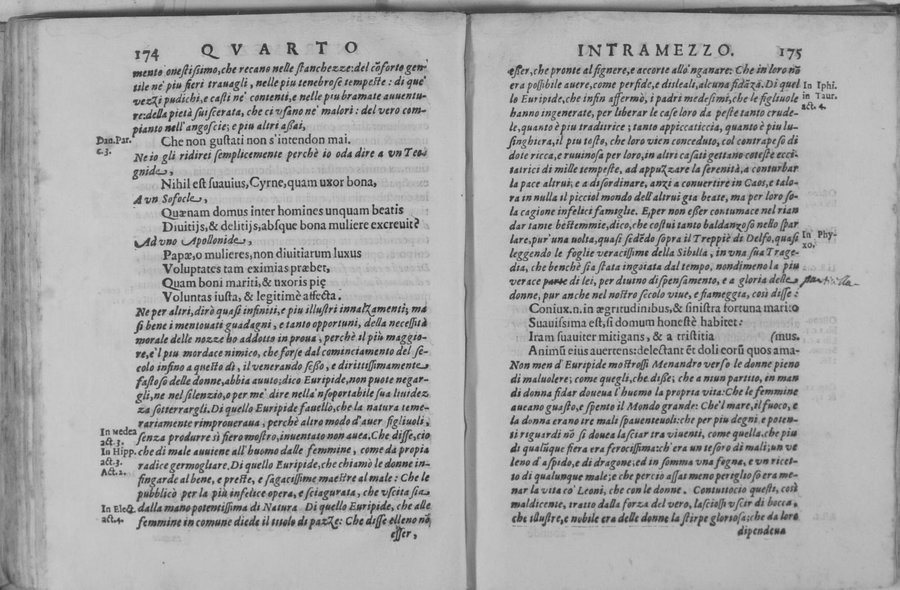 174 QVARTO
mento onestissimo, che recano nelle stanchezze: del cōforto gen-
tile ne' piu fieri trauagli, nelle piu tenebrose tempeste: di que'
vezzi pudichi, e casti ne' contenti, e nelle piu bramate auuentu-
re: della pietà suiscerata, che ci vsano ne' malori: del vero com-
pianto nell'angoscie; e piu altri assai,
Dan. Par. c. 3.
Che non gustati non s'intendon mai.
Ne io gli ridirei semplicemente perchè io oda dire a vn Teo-
gnide,
Nihil est suauius, Cyrne, quam uxor bona,
A vn Sofocle,
Quænam domus inter homines unquam beatis
Diuitijs, & delitijs, absque bona muliere excreuit?
Ad vno Apollonide,
Papæ, o mulieres, non diuitiarum luxus
Voluptates tam eximias præbet,
Quam boni mariti, & uxoris pię
Voluntas iusta, & legitimè affecta.
Ne per altri, dirò quasi infiniti, e piu illustri innalzamenti; ma
si bene i mentouati guadagni, e tanto opportuni, della necessità
morale delle nozze ho addotto in proua, perchè il piu maggio-
re, e'l piu mordace nimico, che forse dal cominciamento del se-
colo infino a questo dì, il venerando sesso, e dirittissimamente
fastoso delle donne, abbia auuto; dico Euripide, non puote negar-
gli, ne nel silenzio, o per me' dire nella 'nsoportabile sua liuidez
za sotterrargli. Di quello Euripide fauello, che la natura teme-
rariamente rimproueraua, perchè altro modo d'auer figliuoli,
In Medea act. 3.
senza produrre sì fiero mostro, inuentato non auea. Che disse, ciò
In Hipp. act. 3.
che di male auuiene all'huomo dalle femmine, come da propia
Act. 2.
radice germogliare. Di quello Euripide, che chiamò le donne in-
fingarde al bene, e preste, e sagacissime maestre al male: Che le
pubblicò per la più infelice opera, e sciagurata, che vscita sia
In Elect. act. 4.
dalla mano potentissima di Natura. Di quello Euripide, che alle
femmine in comune diede il titolo di pazze: Che disse elleno nō
esser,
INTRAMEZZO. 175
esser, che pronte al fignere, e accorte allo 'nganare: Che in loro nō
era possibile auere, come perfide, e disleali, alcuna fidāza. Di quel
In Iphi. in Taur. act. 4.
lo Euripide, che infin affermò, i padri medesimi, che le figliuole
hanno ingenerate, per liberar le case loro da peste tanto crude-
le, quanto è piu traditrice; tanto appiccaticcia, quanto è piu lu-
singhiera, il piu tosto, che loro vien conceduto, col contrapeso di
dote ricca, e ruuinosa per loro, in altri casati gettano coteste ecci-
tatrici di mille tempeste, ad appuzzare la serenità, a conturbar
la pace altrui; e a disordinare, anzi a conuertire in Caos, e talo-
ra in nulla il picciol mondo dell'altrui gia beate, ma per loro so-
la cagione infelici famiglie. E, per non esser contumace nel rian
dar tante bestemmie, dico, che costui tanto baldanzoso nello spar
In Phy- xo.
lare, pur' a una uolta, quasi sedēdo sopra il Treppiè di Delfo, quasi
leggendo le foglie veracissime della Sibilla, in vna sua Trage-
dia, che benchè sia stata ingoiata dal tempo, nondimeno la piu
verace parte di lei, per diuino dispensamento, e a gloria delle
particella
donne, pur anche nel nostro secolo viue, e fiameggia, così disse:
Coniux. n. in ægritudinibus, & sinistra fortuna marito
Suauissima est, si domum honestè habitet:
Iram suauiter mitigans, & a tristitia (mus.
Animū eius auertens: delectant ēt doli eorū quos ama-
Non men d'Euripide mostrossi Menandro verso le donne pieno
di maluolere; come quegli, che disse; che a niun partito, in man
di donna fidar doueua l'huomo la propria vita: Che le femmine
aueano guasto, e spento il Mondo grande: Che'l mare, il fuoco, e
la donna erano tre mali spauenteuoli: che per piu degni, e poten-
ti riguardi nō si douea lasciar tra viuenti, come quella, che piu
di qualūque fiera era ferocissima: ch'era un tesoro di mali; un ve
leno d'aspido, e di dragone; ed in somma vna fogna, e vn ricet-
to di qualunque male; e che perciò assai meno periglioso era me-
nar la vita co' Leoni, che con le donne. Contuttociò questi, così
maldicente, tratto dalla forza del vero, lasciossi vscir di bocca,
che illustre, e nobile era delle donne la stirpe gloriosa; che da loro
dipendeua